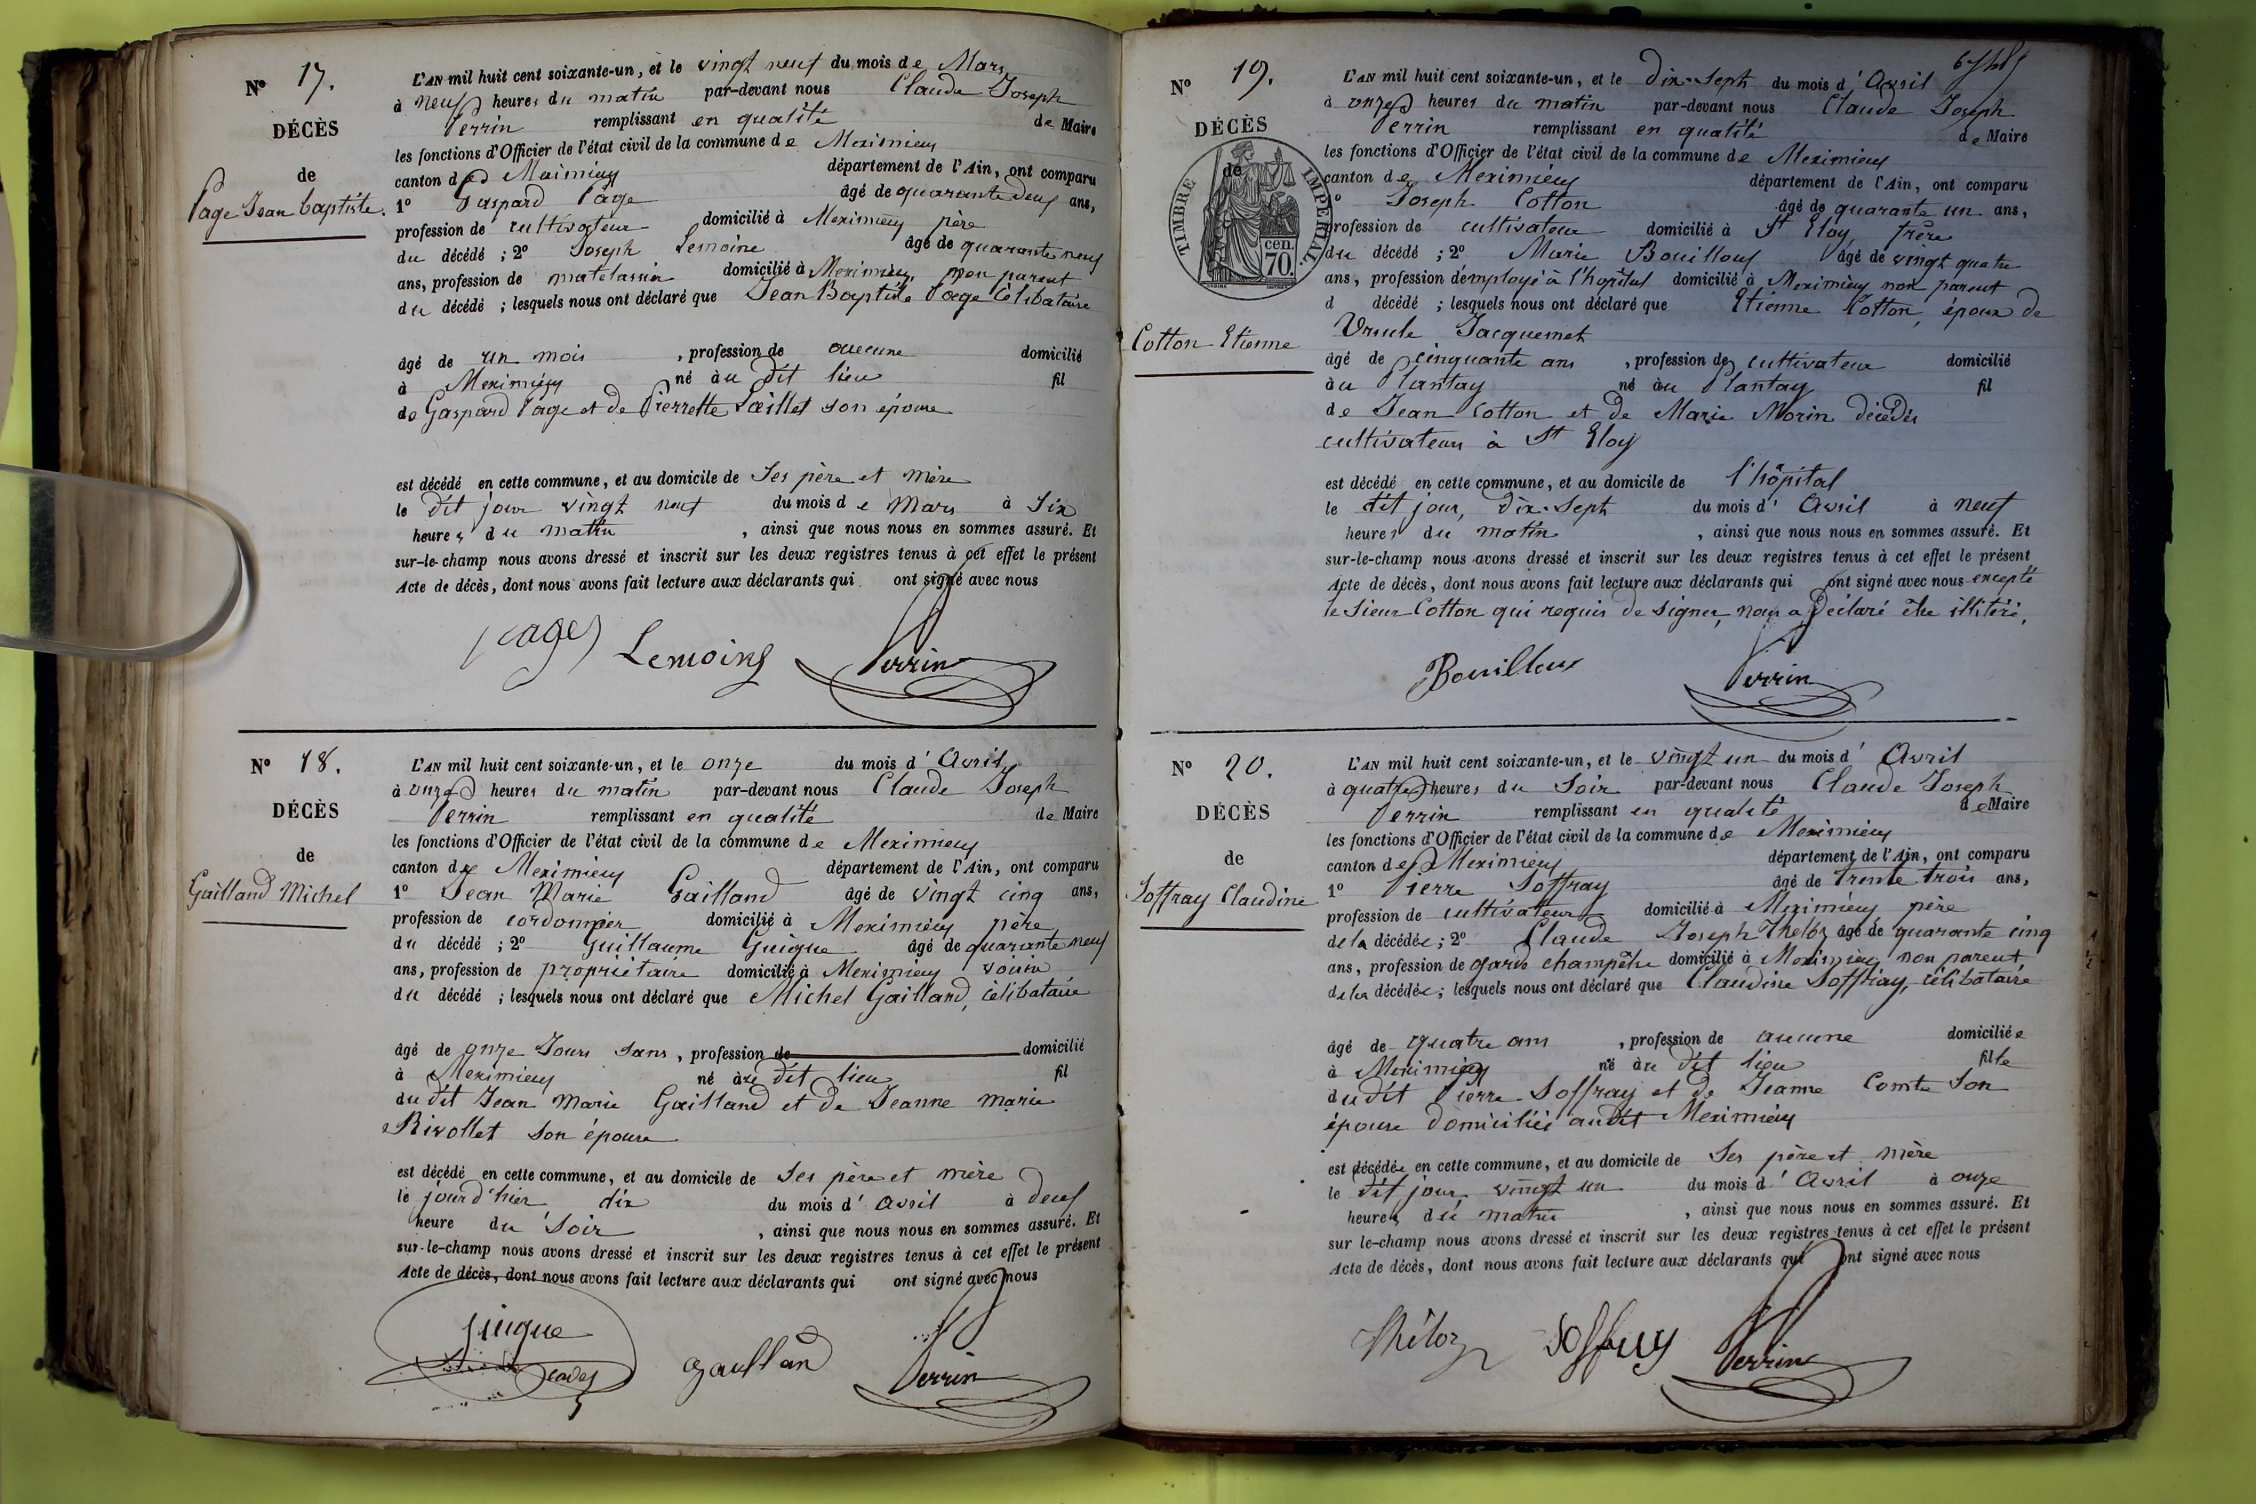 N° 17.
DÉCÈS
de
Page Jean Baptiste.
L'AN mil huit cent soixante-un, et le vingt neuf du mois de Mars
à neuf heures du matin par-devant nous Claude Joseph
Perrin remplissant en qualité de Maire
les fonctions d'Officier de l'état civil de la commune de Meximieux
canton de Meximieux département de l'Ain, ont comparu
1° Gaspard Page âgé de quarante deux ans,
profession de cultivateur domicilié à Meximieux père
du décédé ; 2° Joseph Lemoine âgé de quarante neuf
ans, profession de matelassier domicilié à Meximieux, non parent
du décédé ; lesquels nous ont déclaré que Jean Baptiste Page célibataire
âgé de un mois , profession de aucune domicilié
à Meximieux né au dit lieu fil
de Gaspard Page et de Pierrette Sœillet son épouse
est décédé en cette commune, et au domicile de Ses père et mère
le dit jour vingt neuf du mois de Mars à Six
heures du matin , ainsi que nous nous en sommes assuré. Et
sur-le-champ nous avons dressé et inscrit sur les deux registres tenus à cet effet le présent
Acte de décès, dont nous avons fait lecture aux déclarants qui ont signé avec nous
page Lemoine Perrin
N° 18.
DÉCÈS
de
Gailland Michel
L'AN mil huit cent soixante-un, et le onze du mois d' Avril
à onze heures du matin par-devant nous Claude Joseph
Perrin remplissant en qualité de Maire
les fonctions d'Officier de l'état civil de la commune de Meximieux
canton de Meximieux département de l'Ain, ont comparu
1° Jean Marie Gailland âgé de vingt cinq ans,
profession de cordonnier domicilié à Meximieux père
du décédé ; 2° Guillaume Guigue âgé de quarante neuf
ans, profession de propriétaire domicilié à Meximieux voisin
du décédé ; lesquels nous ont déclaré que Michel Gailland, célibataire
âgé de onze Jours sans , profession de domicilié
à Meximieux né au dit lieu fil
du dit Jean Marie Gailland et de Jeanne marie
Rivollet son épouse
est décédé en cette commune, et au domicile de Ses père et mère
le jour d'hier dix du mois d' Avril à deux
heure du Soir , ainsi que nous nous en sommes assuré. Et
sur-le-champ nous avons dressé et inscrit sur les deux registres tenus à cet effet le présent
Acte de décès, dont nous avons fait lecture aux déclarants qui ont signé avec nous
guigue
gaulland Perrin
N° 19.
DÉCÈS
de
TIMBRE IMPÉRIAL
cen.
70.
Cotton Etienne
L'AN mil huit cent soixante-un, et le dix-Sept du mois d' Avril
à onze heures du matin par-devant nous Claude Joseph
Perrin remplissant en qualité de Maire
les fonctions d'Officier de l'état civil de la commune de Meximieux
canton de Meximieux département de l'Ain, ont comparu
Joseph Cotton âgé de quarante un ans,
profession de cultivateur domicilié à St Eloy frère
du décédé ; 2° Marie Bouilloux âgé de vingt quatre
ans, profession d'employé à l'hôpital domicilié à Meximieux non parent
d décédé ; lesquels nous ont déclaré que Etienne Cotton, époux de
Ursule Jacquemet
âgé de cinquante ans , profession de cultivateur domicilié
au Plantay né au Plantay fil
de Jean Cotton et de Marie Morin décédés
cultivateurs à St Eloy
est décédé en cette commune, et au domicile de l'hôpital
le dit jour, dix-Sept du mois d' Avril à neuf
heures du matin , ainsi que nous nous en sommes assuré. Et
sur-le-champ nous avons dressé et inscrit sur les deux registres tenus à cet effet le présent
Acte de décès, dont nous avons fait lecture aux déclarants qui ont signé avec nous excepté
le Sieur Cotton qui requis de signer, nous a déclaré être illitéré.
Bouilloux Perrin
N° 20.
DÉCÈS
de
Soffray Claudine
L'AN mil huit cent soixante-un, et le vingt un du mois d' Avril
à quatre heures du Soir par-devant nous Claude Joseph
Perrin remplissant en qualité de Maire
les fonctions d'Officier de l'état civil de la commune de Meximieux
canton de Meximieux département de l'Ain, ont comparu
1° Pierre Soffray âgé de trente trois ans,
profession de cultivateur domicilié à Meximieux père
de la décédée ; 2° Claude Joseph Theloz âgé de quarante cinq
ans, profession de garde champêtre domicilié à Meximieux non parent
de la décédée ; lesquels nous ont déclaré que Claudine Soffray, célibataire
âgé de quatre ans , profession de aucune domiciliée
à Meximieux né au dit lieu fille
du dit Pierre Soffray et de Jeanne Comte Son
épouse domiciliés audit Meximieux
est décédée en cette commune, et au domicile de Ses père et mère
le dit jour vingt un du mois d' Avril à onze
heures du matin , ainsi que nous nous en sommes assuré. Et
sur le-champ nous avons dressé et inscrit sur les deux registres tenus à cet effet le présent
Acte de décès, dont nous avons fait lecture aux déclarants qui ont signé avec nous
théloz Soffray Perrin